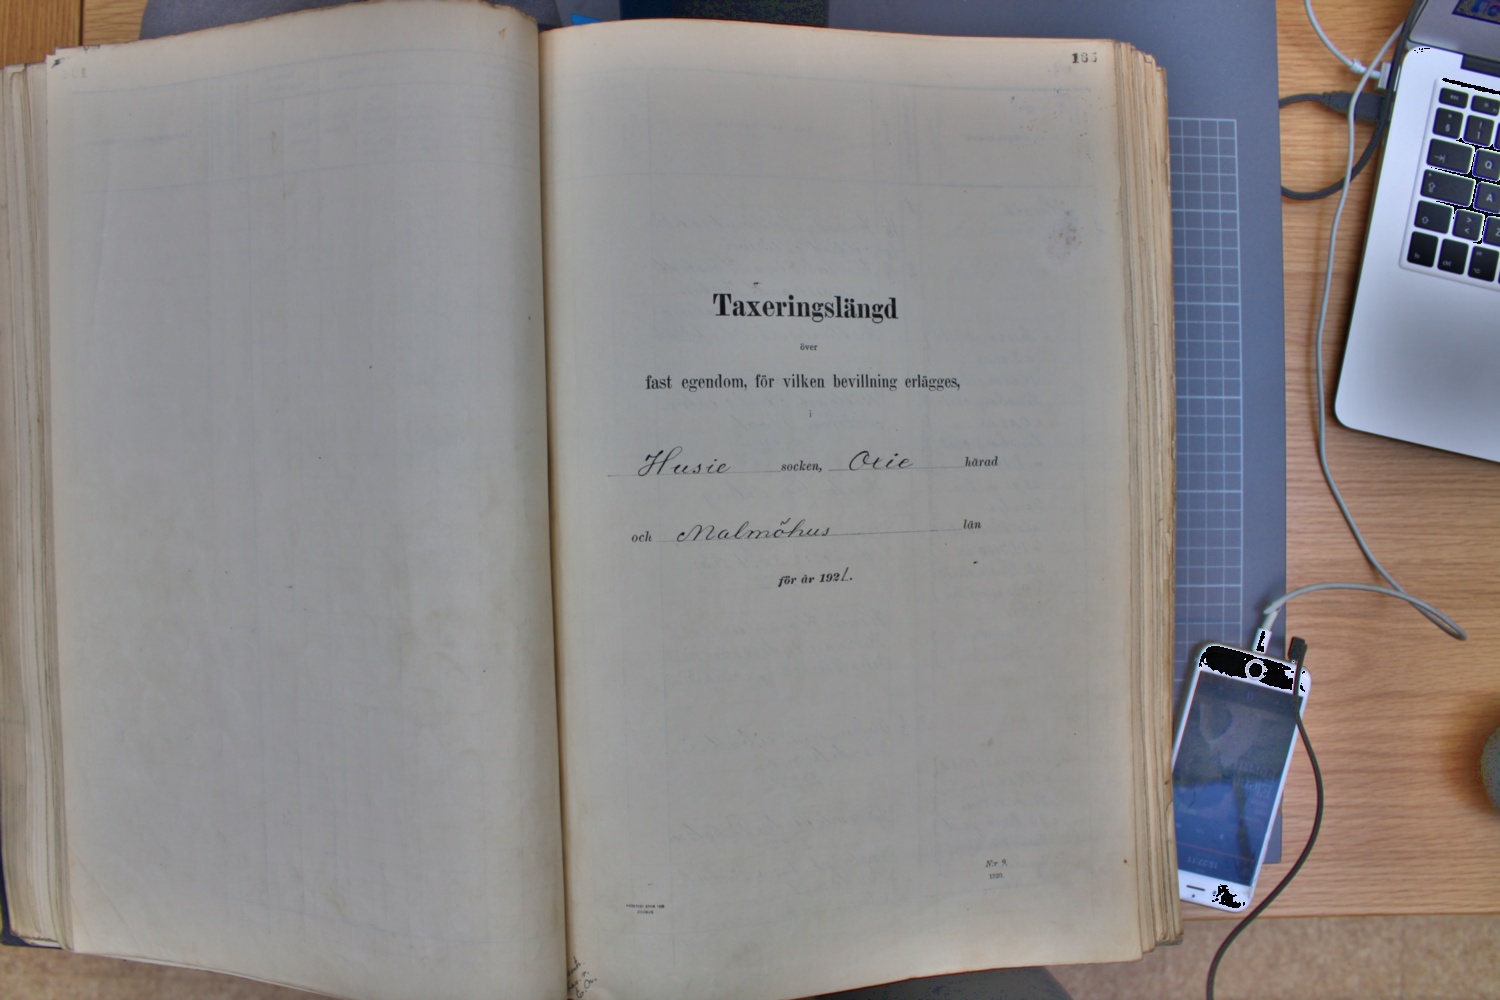 Taxeringslängd
över
fast egendom, för vilken bevillning erlägges,
i
Husie socken, Oxie härad
och Malmöhus län
för år 1921.
N:r 9.
1920.